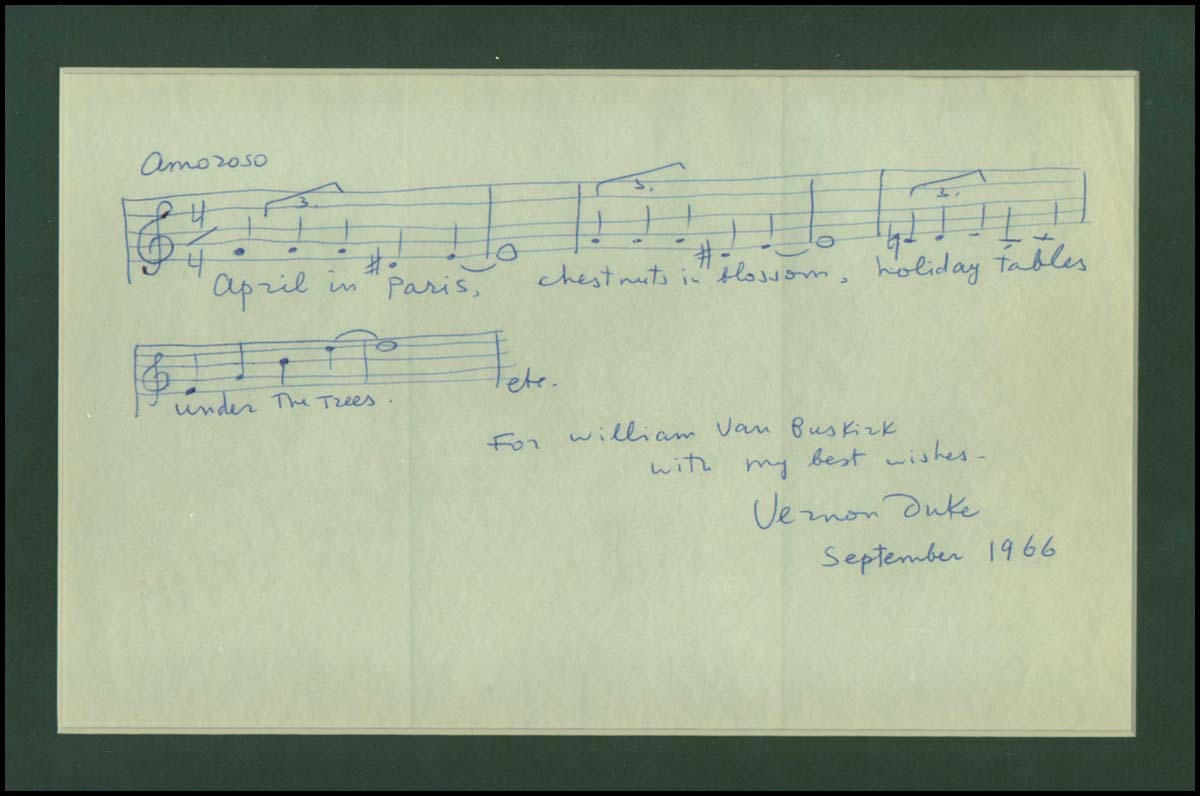 Amoroso
4
4
3.
3.
3.
April in Paris, chestnuts in blossom, holiday tables
under The Trees.
etc.
For William Van Buskirk
with my best wishes-
Vernon Duke
September 1966